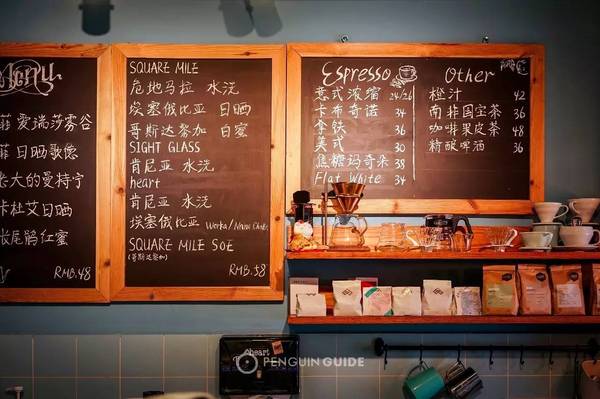 Menu
菲 爱瑞莎雾谷
菲 日晒歌德
老大的曼特宁
卡杜艾日晒
长尾鹃红蜜
RMB.48
SQUARE MILE
危地马拉 水洗
埃塞俄比亚 日晒
哥斯达黎加 白蜜
SIGHT GLASS
肯尼亚 水洗
heart
肯尼亚 水洗
埃塞俄比亚 Worka/
SQUARE MILE SOE
(哥斯达黎加)
RMB.58
Espresso
意式浓缩 24/26
卡布奇诺 34
拿铁 36
美式 30
焦糖玛奇朵 38
Flat White 34
Other
橙汁 42
南非国宝茶 36
咖啡果皮茶 48
精酿啤酒 36
heart
PENGUIN GUIDE